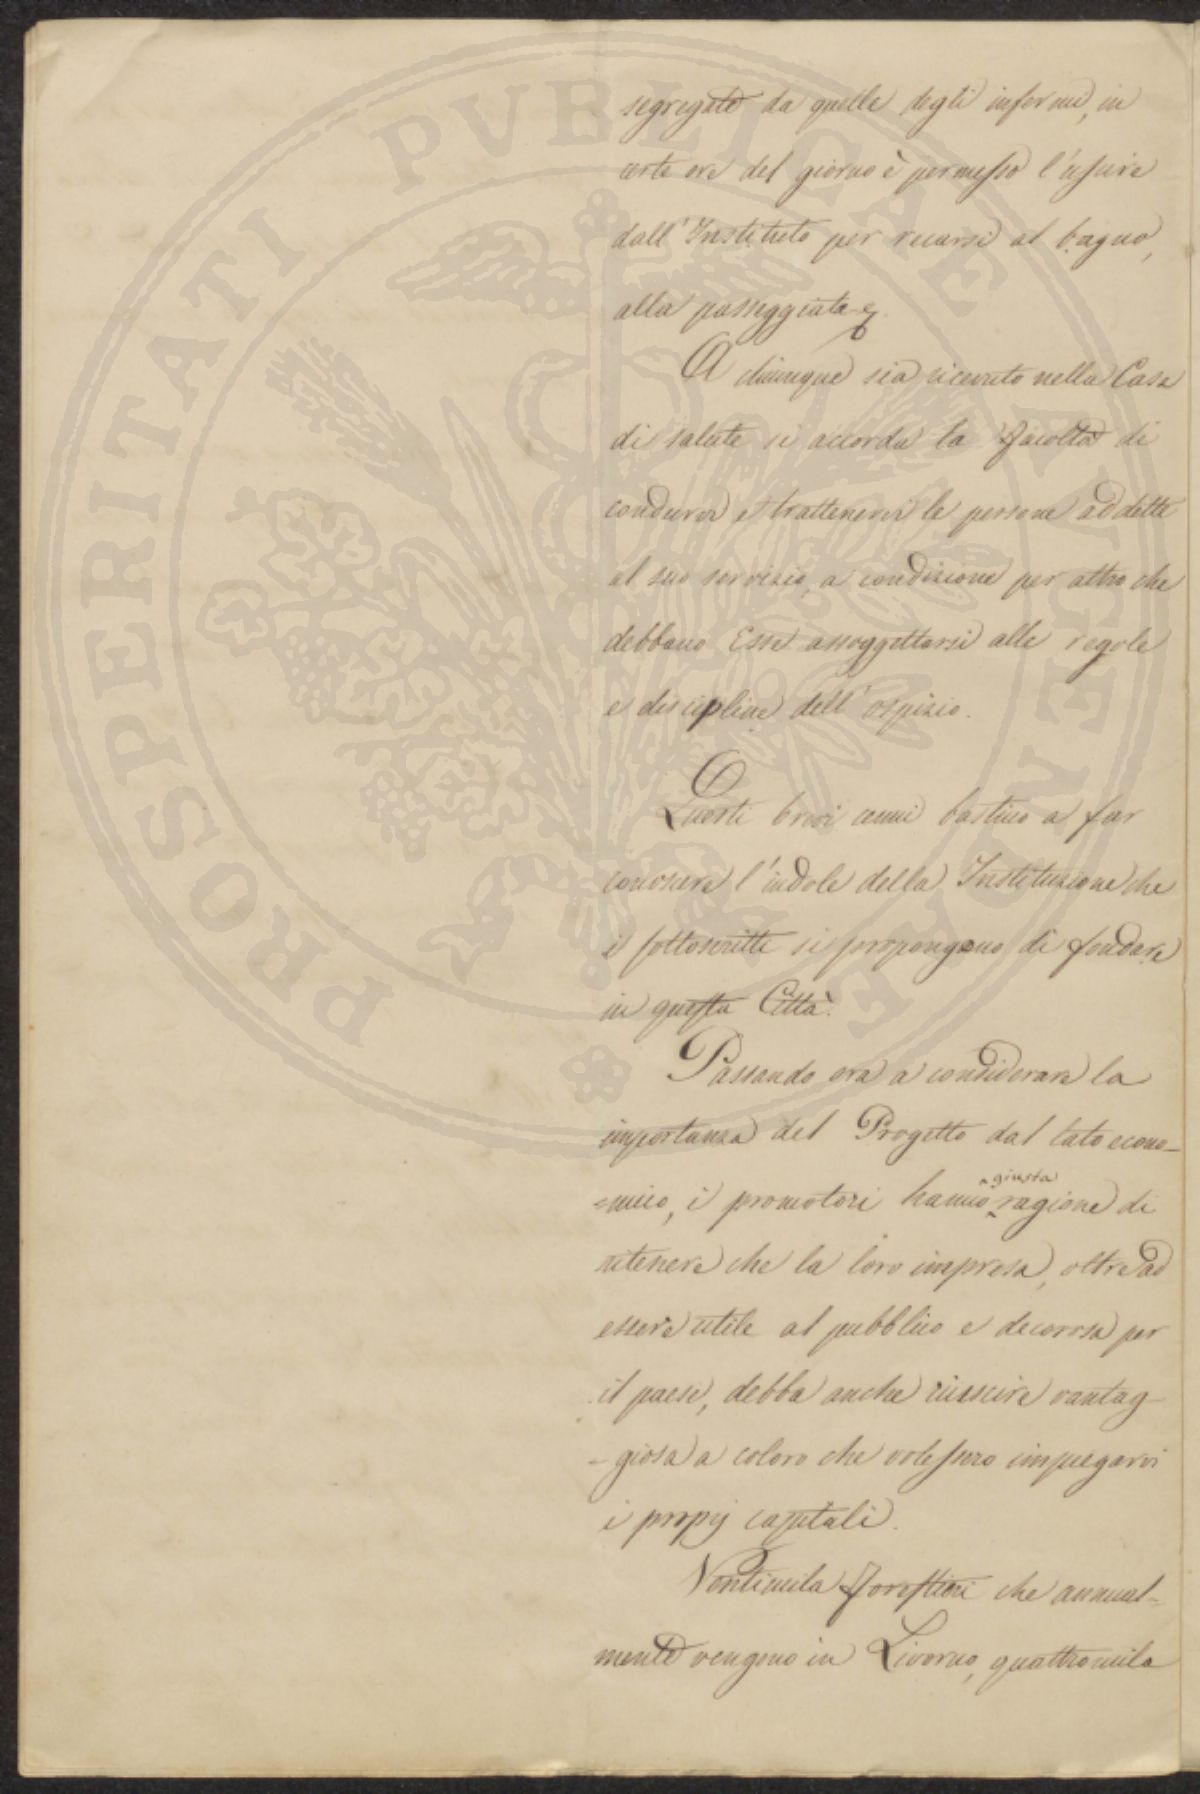 segregate da quelle degli infermi, in
certe ore del giorno è permesso l'uscire
dall'Instituto per recarsi al bagno,
alla passeggiata &.
A chiunque sia ricevuto nella Casa
di salute si accorda la Facoltà di
condurvi e trattenervi le persone addette
al suo servizio, a condizione per altro che
debbano Esse assoggettarsi alle regole
e discipline dell'ospizio.
Questi brevi cenni bastino a far
conoscere l'indole della Instituzione che
i sottoscritti si propongono di fondare
in questa Città.
Passando ora a considerare la
importanza del Progetto dal lato econo-
=mico, i promotori hanno giusta ragione di
ritenere che la loro impresa, oltre ad
essere utile al pubblico e decorosa per
il paese, debba anche riuscire vantag-
-giosa a coloro che volessero impiegarvi
i proprj capitali.
Ventimila Forestieri che annual-
mente vengono in Livorno, quattromila
PROSPERITATI PVBLICAE AVGENDAE